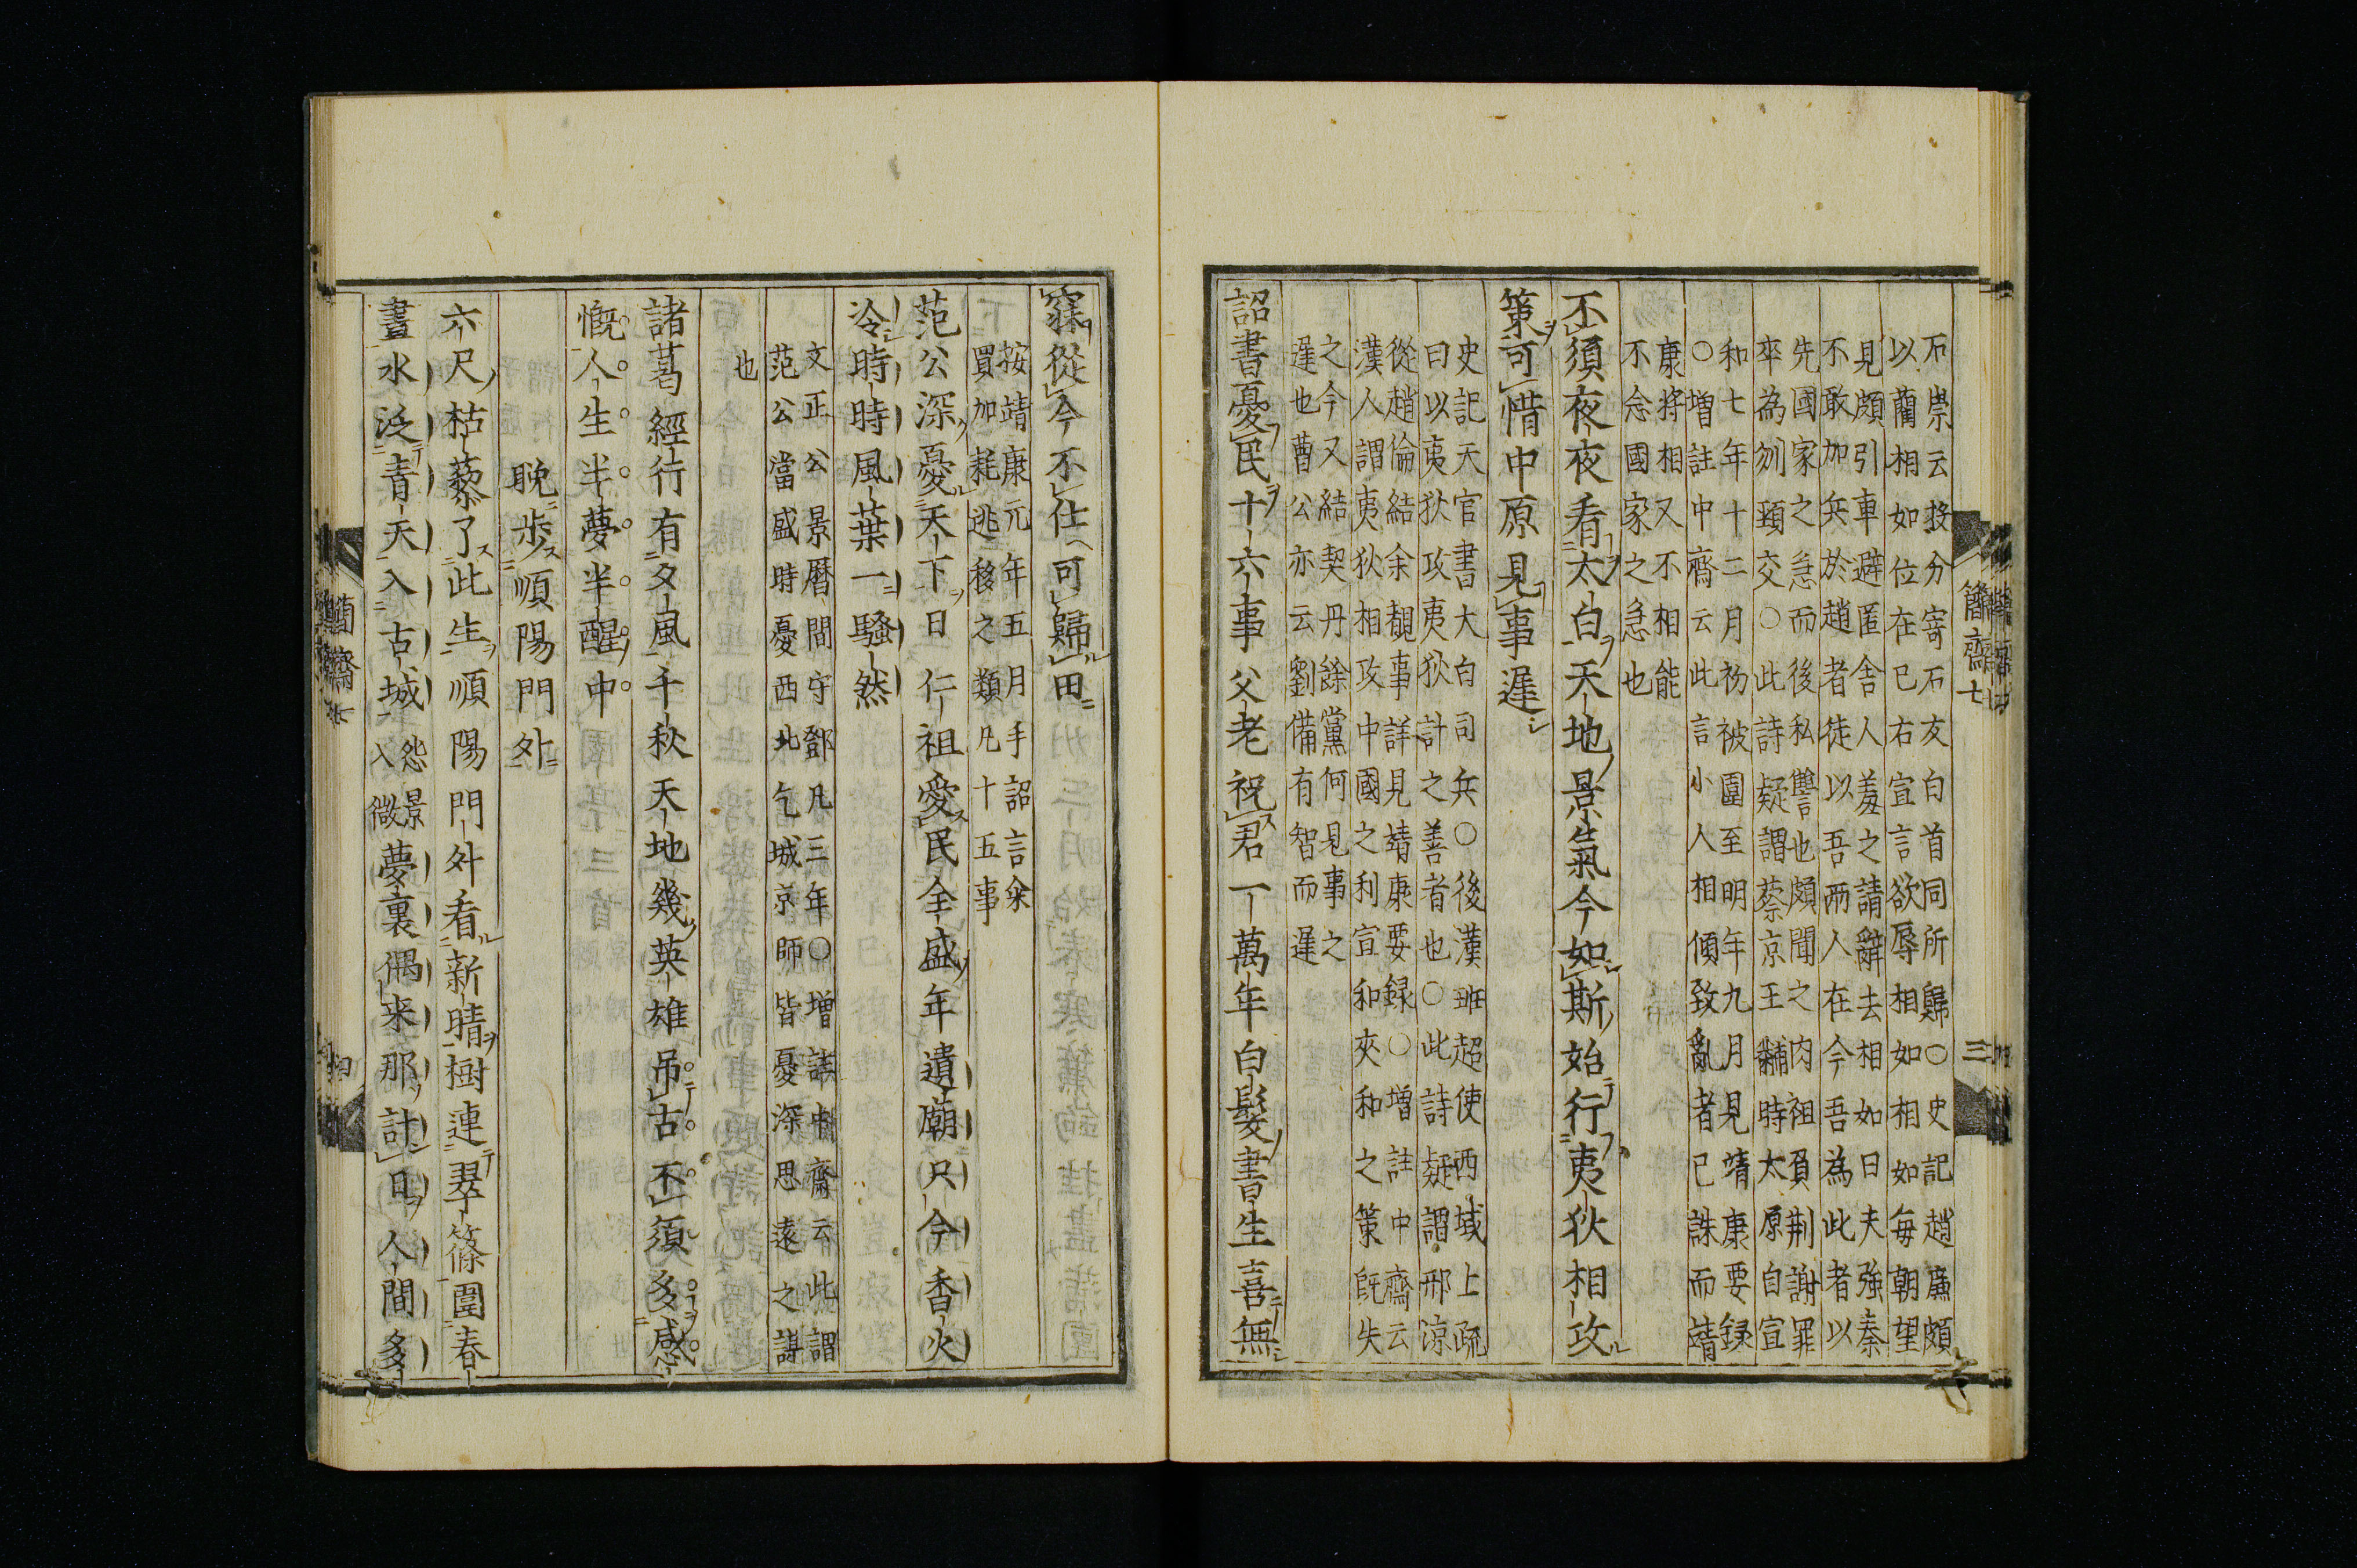 石崇云投分寄石友白首同所歸○史記趙廉頗
以藺相如位在己右宣言欲辱相如相如每朝望
見頗引車避匿舍人羞之請辭去相如曰夫強秦
不敢加兵於趙者徒以吾兩人在今吾為此者以
先國家之急而後私讐也頗聞之肉袒負荆謝罪
卒為刎頸交○此詩疑謂蔡京王黼時太原自宣
和七年十二月初被圍至明年九月見靖康要録
○増註中齊云此言小人相傾致亂者已誅而靖
康將相又不相能
不念國家之急也
不須夜夜看太白天地景氣今如斯始行夷狄相攻
策可惜中原見事遲
史記天官書大白司兵○後漢班超使西域上疏
曰以夷狄攻夷狄計之善者也○此詩疑謂邢涼
從趙倫結余覩事詳見靖康要録○増註中齊云
漢人謂夷狄相攻中國之利宣和夾和之策既失
之今又結契丹餘黨何見事之
遲也曹公亦云劉備有智而遲
詔書憂民十六事父老祝君一萬年白髮書生喜無
簡齋七
三
寐從今不仕可歸田
按靖康元年五月手詔言余
買加耗逃移之類凡十五事
范公深憂天下日仁祖愛民全盛年遺廟只今香火
冷時時風葉一騷然
文正公景曆間守鄧凡三年○増註中齋云此謂
范公當盛時憂西北乞城京師皆憂深思遠之謀
也
諸葛經行有夕風千秋天地幾英雄吊古不須多感
慨人生半夢半醒中
晩歩順陽門外
六尺枯藜了此生順陽門外看新晴樹連翠篠圍春
晝水泛青天入古城怨景入微夢裏偶来那計日人間多
簡齋七
四